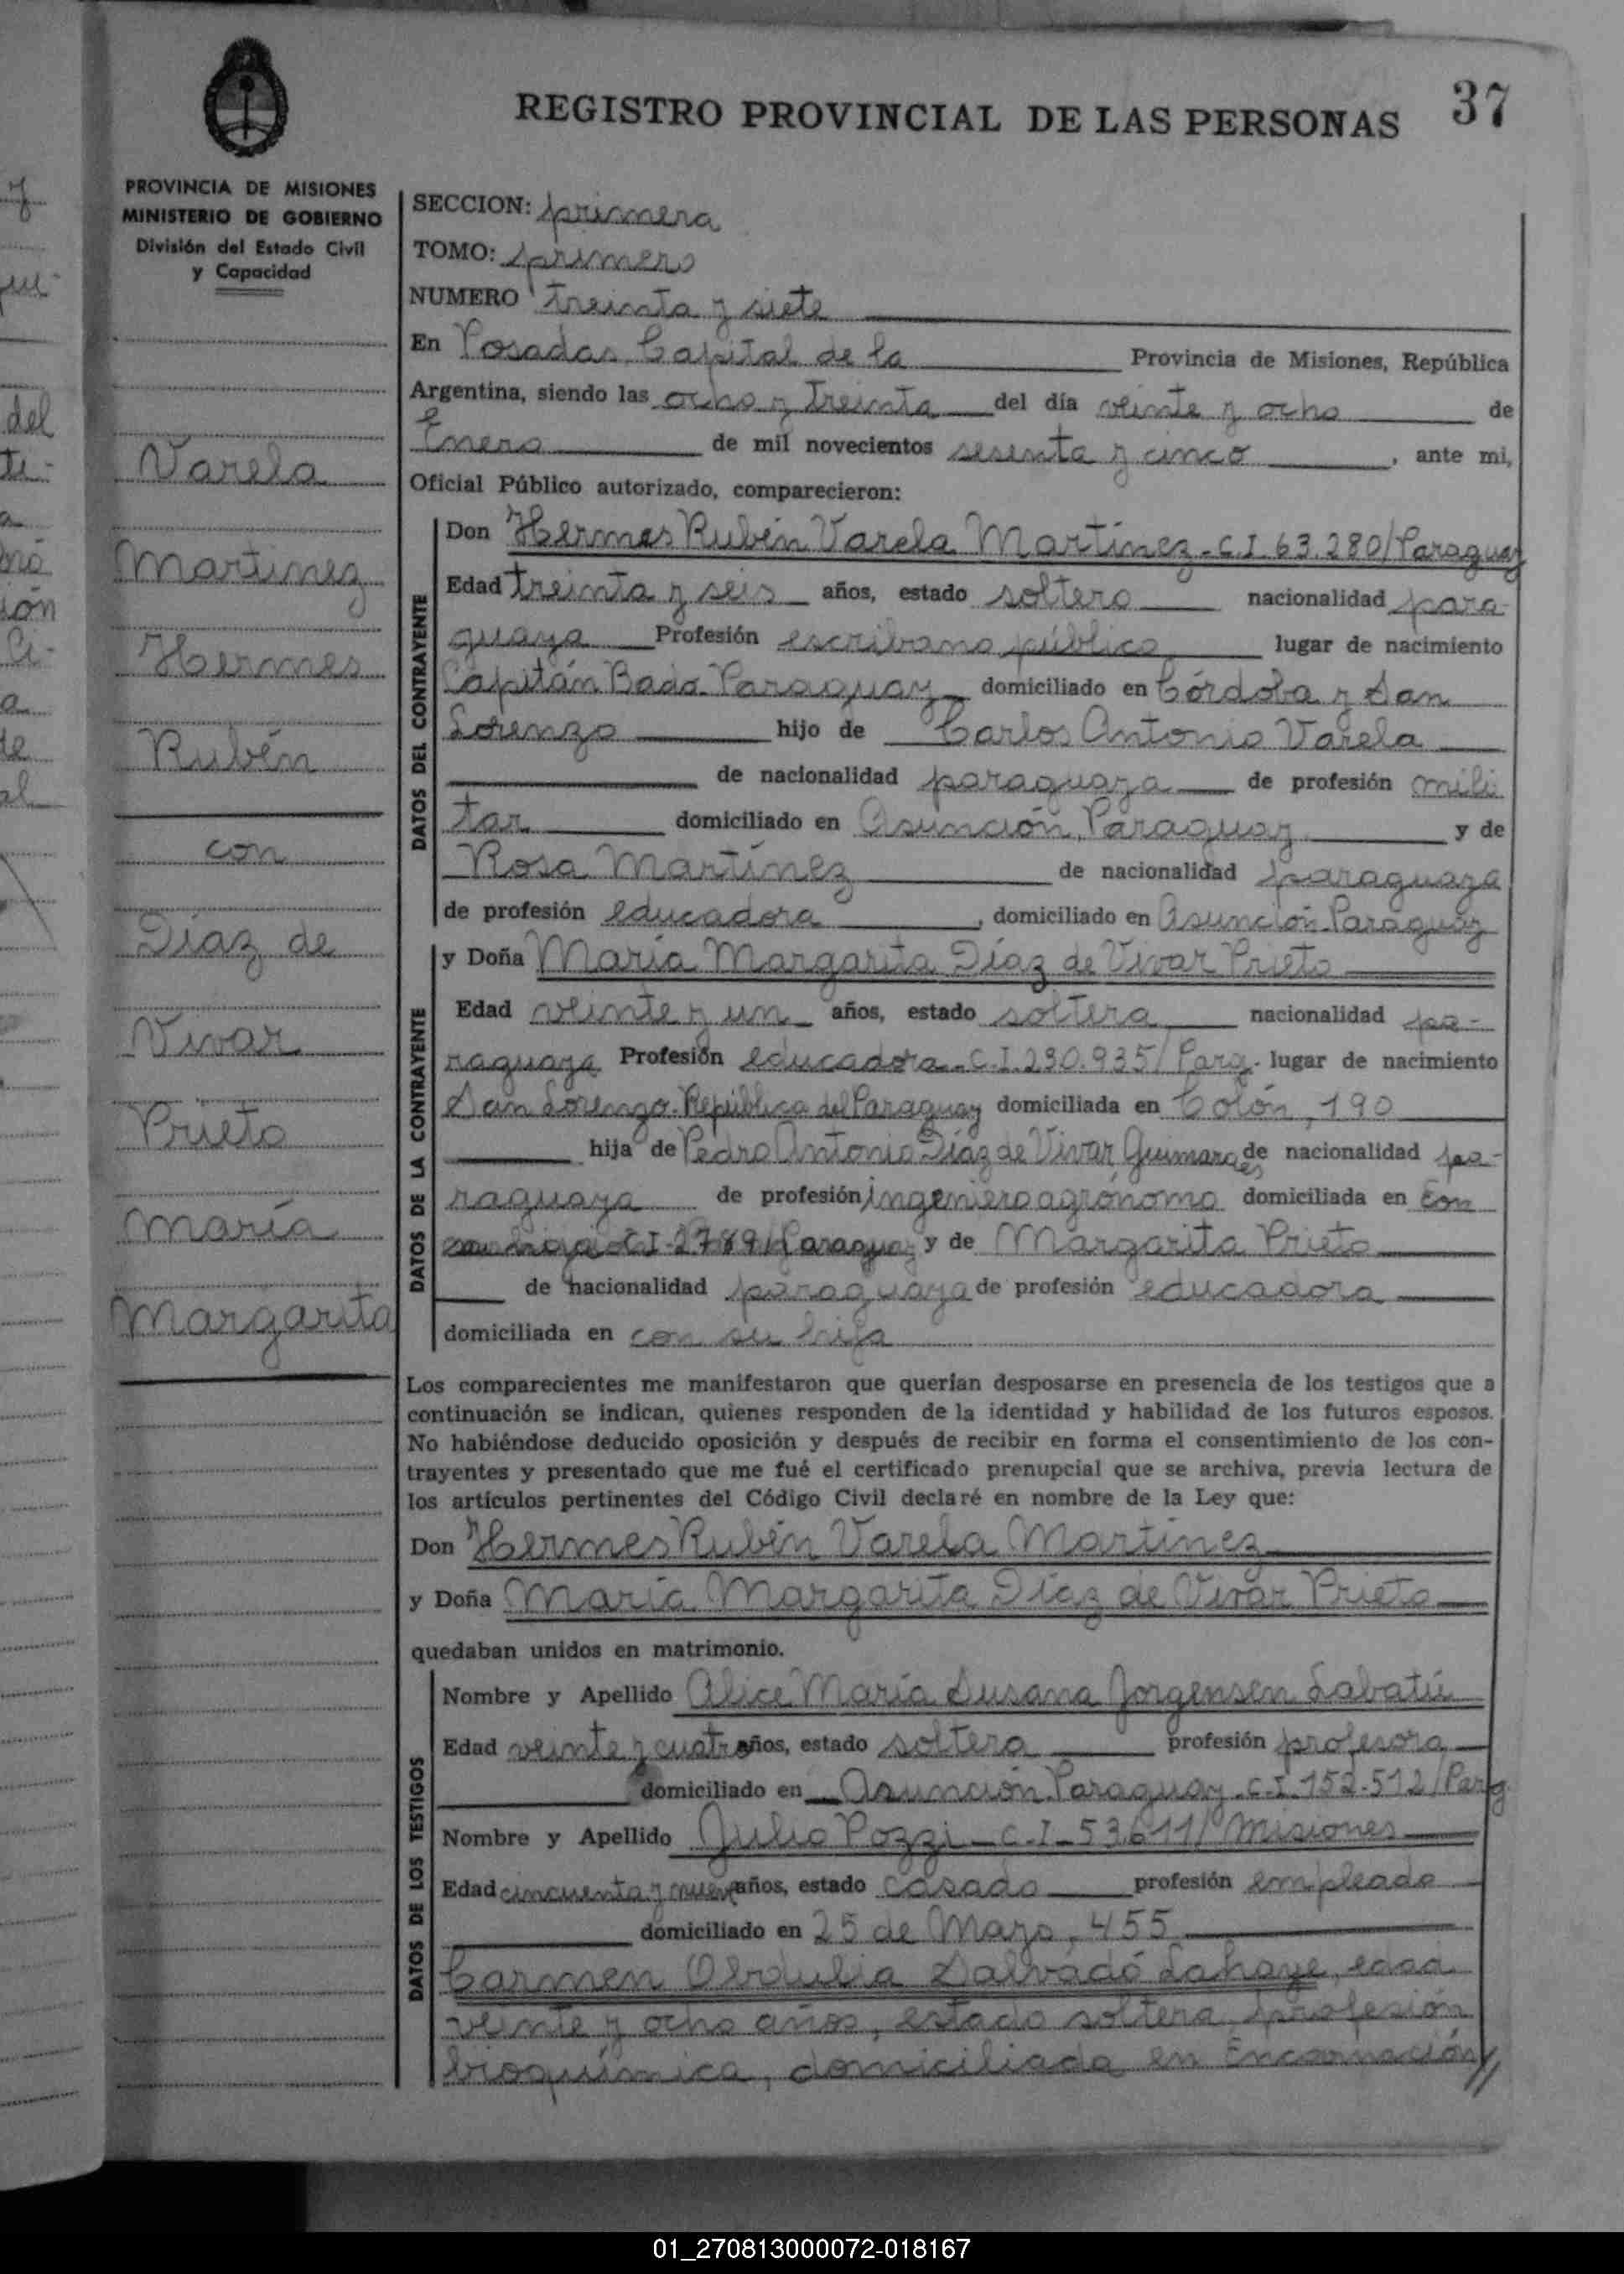 REGISTRO PROVINCIAL DE LAS PERSONAS 37
PROVINCIA DE MISIONES
MINISTERIO DE GOBIERNO
División del Estado Civil
y Capacidad
Varela
Martinez
Hermes
Rubén
con
Díaz de
Vivar
Prieto
María
Margarita
SECCION: primera
TOMO: primero
NUMERO treinta y siete
En Posadas Capital de la Provincia de Misiones, República
Argentina, siendo las ocho y treinta del día veinte y ocho de
Enero de mil novecientos sesenta y cinco, ante mi,
Oficial Público autorizado, comparecieron:
DATOS DEL CONTRAYENTE
Don Hermes Rubén Varela Martínez-C.I. 63.280/Paraguay
Edad treinta y seis años, estado soltero nacionalidad para-
guaya Profesión escribano público lugar de nacimiento
Capitán Bado-Paraguay domiciliado en Córdoba y San
Lorenzo hijo de Carlos Antonio Varela
de nacionalidad paraguaya de profesión mili
tar domiciliado en Asunción, Paraguay y de
Rosa Martínez de nacionalidad paraguaya
de profesión educadora, domiciliado en Asunción-Paraguay
DATOS DE LA CONTRAYENTE
y Doña María Margarita Díaz de Vivar Prieto
Edad veinte y un años, estado soltera nacionalidad pa-
raguaya Profesión educadora-C.I.230.935/Parg. lugar de nacimiento
San Lorenzo-República del Paraguay domiciliada en Colón, 190
hija de Pedro Antonio Díaz de Vivar Guimaraes de nacionalidad pa-
raguaya de profesión ingeniero agrónomo domiciliada en Con
su hija C.I-2789/Paraguay y de Margarita Prieto
de nacionalidad paraguaya de profesión educadora
domiciliada en con su hija
Los comparecientes me manifestaron que querían desposarse en presencia de los testigos que a
continuación se indican, quienes responden de la identidad y habilidad de los futuros esposos.
No habiéndose deducido oposición y después de recibir en forma el consentimiento de los con-
trayentes y presentado que me fué el certificado prenupcial que se archiva, previa lectura de
los artículos pertinentes del Código Civil declaré en nombre de la Ley que:
Don Hermes Rubén Varela Martínez
y Doña María Margarita Díaz de Vivar Prieto
quedaban unidos en matrimonio.
DATOS DE LOS TESTIGOS
Nombre y Apellido Alice María Susana Jorgensen Labatú
Edad veinte y cuatro años, estado soltera profesión profesora
domiciliado en Asunción-Paraguay-C.I.152.512/Parg.
Nombre y Apellido Julio Pozzi-C.I-53.611/Misiones
Edad cincuenta y nueve años, estado casado profesión empleado
domiciliado en 25 de Mayo, 455
Carmen Obdulia Salvadó Lahaye, edad
veinte y ocho años, estado soltera, profesión
bioquímica, domiciliada en Encarnación//
01_270813000072-018167